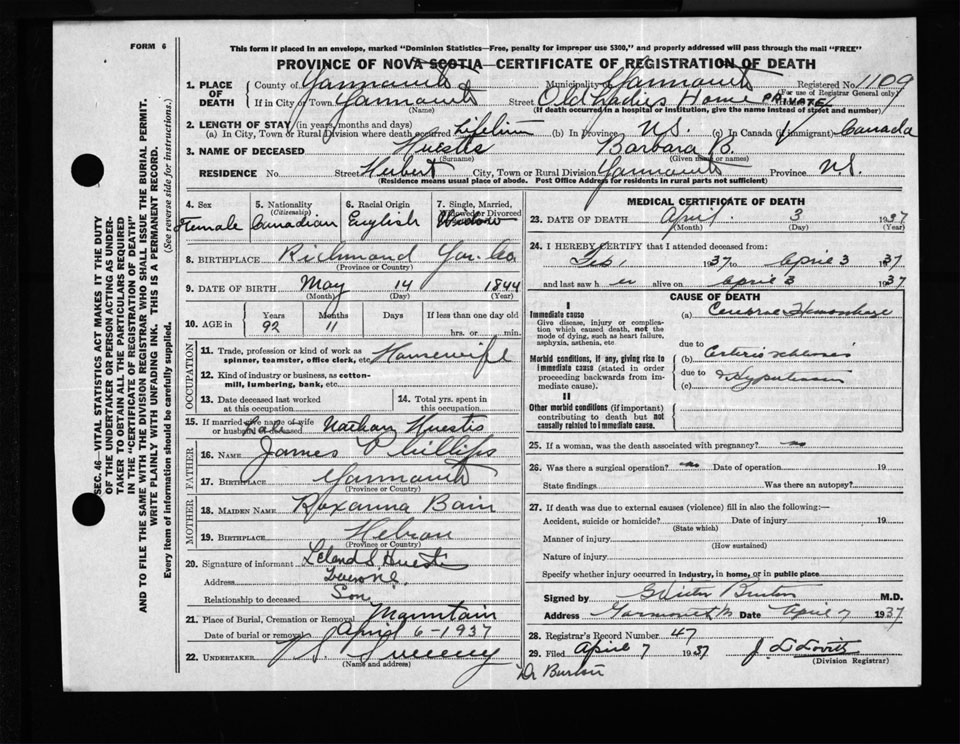 FORM 6
This form if placed in an envelope, marked "Dominion Statistics—Free, penalty for improper use $300," and properly addressed will pass through the mail "FREE"
PROVINCE OF NOVA SCOTIA—CERTIFICATE OF REGISTRATION OF DEATH
1. PLACE OF DEATH County of Yarmouth Municipality of Yarmouth Registered No. 1109
(For use of Registrar General only)
If in City or Town Yarmouth Street Old Ladies Home PRIVATE
(Name) (If death occurred in a hospital or institution, give the name instead of street and number)
2. LENGTH OF STAY (in years, months and days)
(a) In City, Town or Rural Division where death occurred Lifetime (b) In Province N.S. (c) In Canada (if immigrant) Canada
3. NAME OF DECEASED Huestis Barbara B.
(Surname) (Given name or names)
RESIDENCE No. Street Herbert City, Town or Rural Division Yarmouth Province N.S.
(Residence means usual place of abode. Post Office Address for residents in rural parts not sufficient)
SEC. 46—VITAL STATISTICS ACT MAKES IT THE DUTY
OF THE UNDERTAKER OR PERSON ACTING AS UNDER-
TAKER TO OBTAIN ALL THE PARTICULARS REQUIRED
IN THE "CERTIFICATE OF REGISTRATION OF DEATH"
AND TO FILE THE SAME WITH THE DIVISION REGISTRAR WHO SHALL ISSUE THE BURIAL PERMIT.
WRITE PLAINLY WITH UNFADING INK. THIS IS A PERMANENT RECORD.
Every item of information should be carefully supplied. (See reverse side for instructions.)
4. Sex 5. Nationality (Citizenship) 6. Racial Origin 7. Single, Married, Widowed or Divorced
Female Canadian English Widow
8. BIRTHPLACE Richmond Yar. Co.
(Province or Country)
9. DATE OF BIRTH May 14 1844
(Month) (Day) (Year)
10. AGE in Years Months Days If less than one day old
92 11 hrs. or min.
OCCUPATION
11. Trade, profession or kind of work as spinner, teamster, office clerk, etc. Housewife
12. Kind of industry or business, as cotton-mill, lumbering, bank, etc.
13. Date deceased last worked at this occupation 14. Total yrs. spent in this occupation
15. If married give name of wife or husband of deceased Nathan Huestis
FATHER
16. NAME James Phillips
17. BIRTHPLACE Yarmouth
(Province or Country)
MOTHER
18. MAIDEN NAME Roxanna Bain
19. BIRTHPLACE Hebron
(Province or Country)
20. Signature of informant Leland S. Huestis
Address
Relationship to deceased Son
21. Place of Burial, Cremation or Removal Mountain
Date of burial or removal April 6-1937
22. UNDERTAKER Sweeny
(Name and address)
MEDICAL CERTIFICATE OF DEATH
23. DATE OF DEATH April 3 1937
(Month) (Day) (Year)
24. I HEREBY CERTIFY that I attended deceased from:
Feb 1 1937 to April 3 1937
and last saw h er alive on April 3 1937
CAUSE OF DEATH
I
Immediate cause
Give disease, injury or complication which caused death, not the mode of dying, such as heart failure, asphyxia, asthenia, etc.
(a) Cerebral Hemorrhage
due to
Morbid conditions, if any, giving rise to immediate cause (stated in order proceeding backwards from immediate cause).
(b) Arteriosclerosis
due to
(c) Hypertension
II
Other morbid conditions (if important) contributing to death but not causally related to immediate cause.
25. If a woman, was the death associated with pregnancy? no
26. Was there a surgical operation? no Date of operation 19
State findings Was there an autopsy?
27. If death was due to external causes (violence) fill in also the following:—
Accident, suicide or homicide? Date of injury 19
(State which)
Manner of injury
(How sustained)
Nature of injury
Specify whether injury occurred in industry, in home, or in public place
Signed by Burton M.D.
Address Yarmouth Date April 7 1937
28. Registrar's Record Number 47
29. Filed April 7 1937 J. L. Lovitt
(Division Registrar)
Dr Burton